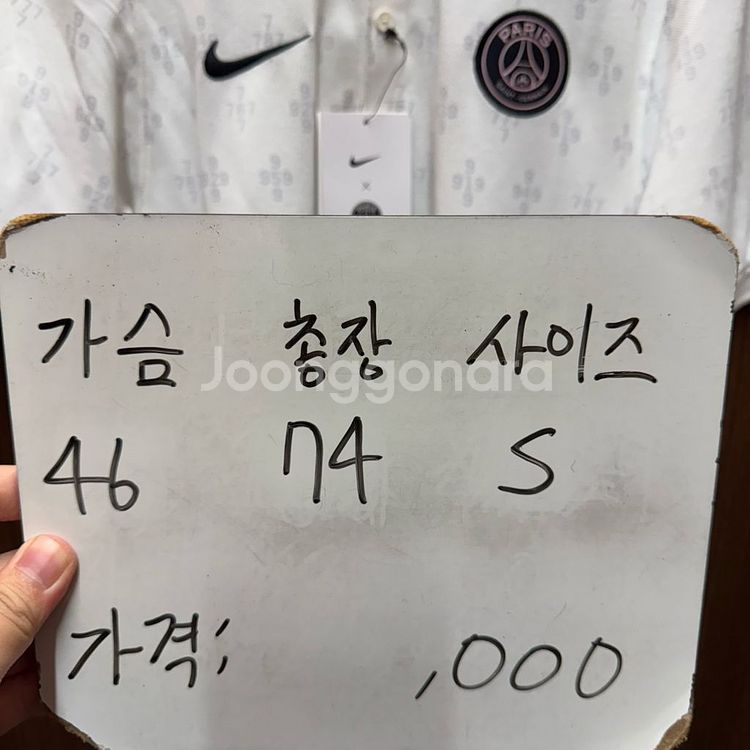 PARIS
가슴 총장 사이즈
Joonggonara
46 74 S
가격; ,000